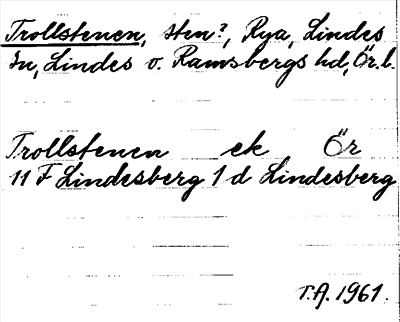 Trollstenen, sten?, Rya, Lindes
sn, Lindes o. Ramsbergs hd, Ör. l.
Trollstenen ek Ör
11 F Lindesberg 1 d Lindesberg
T.A. 1961.